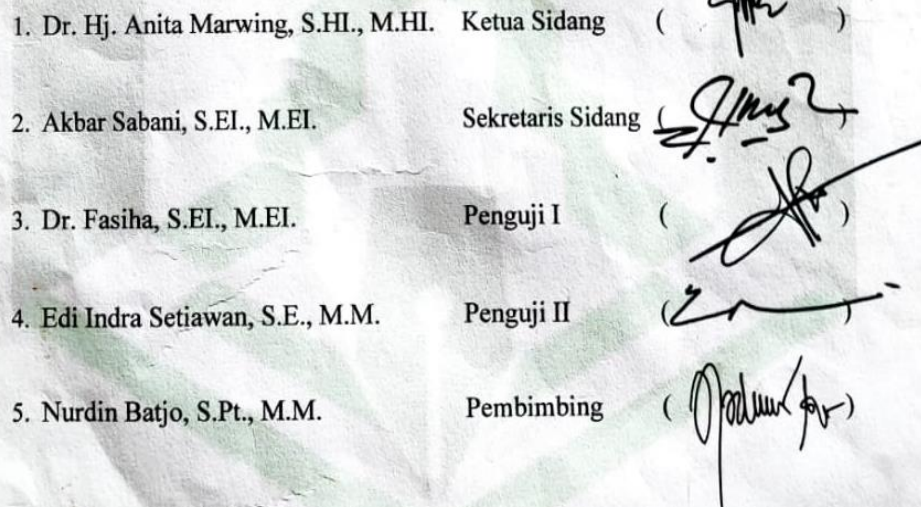 1. Dr. Hj. Anita Marwing, S.HI., M.HI. Ketua Sidang ( )
2. Akbar Sabani, S.EI., M.EI. Sekretaris Sidang ( )
3. Dr. Fasiha, S.EI., M.EI. Penguji I ( )
4. Edi Indra Setiawan, S.E., M.M. Penguji II ( )
5. Nurdin Batjo, S.Pt., M.M. Pembimbing ( )